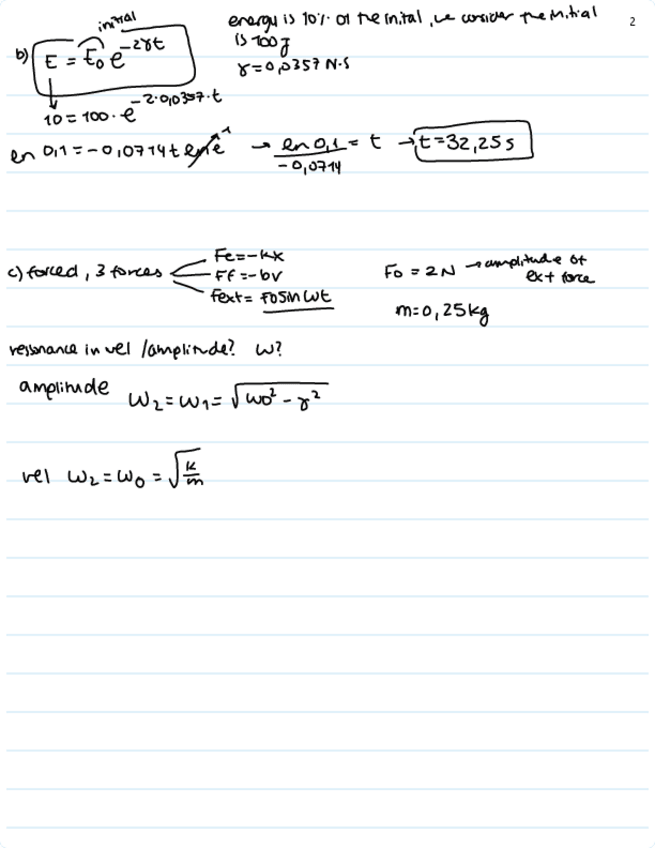 2
initial
b) E = E₀ e^-2γt
energy is 10% of the inital, we consider the initial
is 100 J
γ=0,0357 N·s
10 = 100 · e^-2·0,0357·t
ln 0,1 = -0,0714 t ln e^1 → ln 0,1 / -0,0714 = t → t=32,25 s
c) forced, 3 forces
Fe=-kx
Ff=-bv
Fext= F0sin wt
F0 = 2N → amplitude of
ext force
m=0,25kg
ressonance in vel /amplitude? ω?
amplitude ω₂ = ω₁ = √ω0² - γ²
vel ω₂ = ω₀ = √k/m